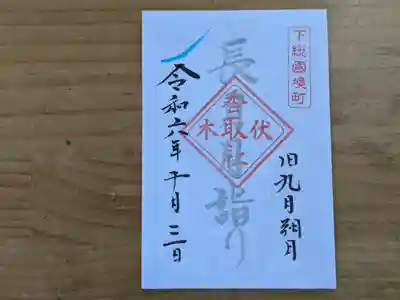 下総國境町
旧九月朔日
長
詣り
伏木
香取社
令和六年 十月 三日